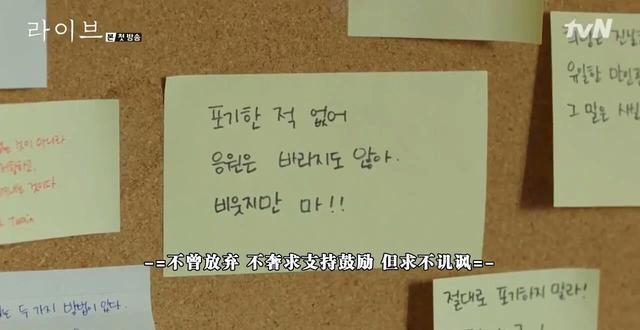 라이브 본 첫 방송
tvN
포기한 적 없어
응원은 바라지도 않아.
비웃지만 마!!
유일한
그 밑은
것이 아니라
것이다
Twain
두 가지 방법이 있다.
절대로 포기하지 말라!
-=不曾放弃 不奢求支持鼓励 但求不讥讽=-